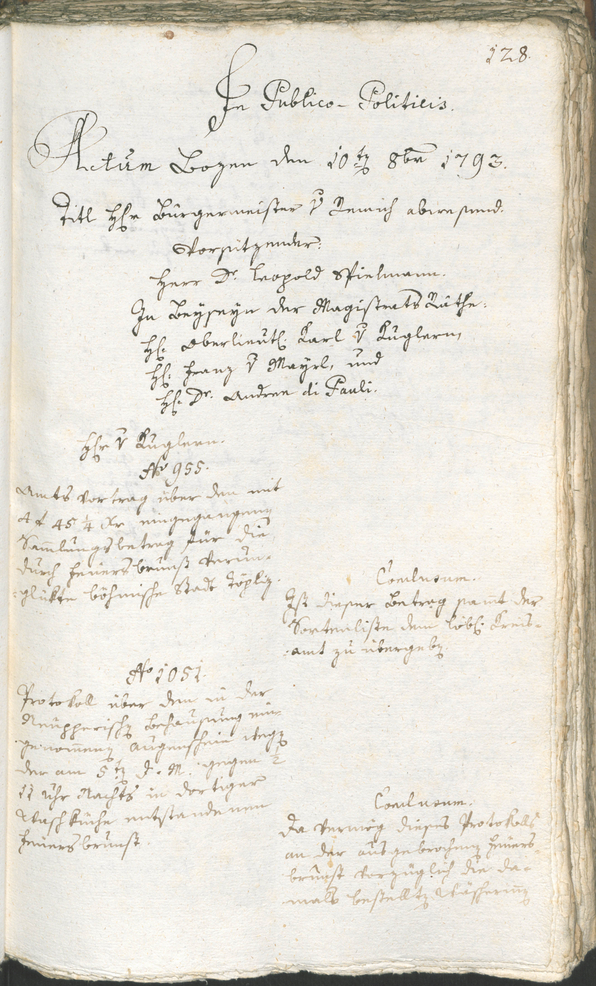 128.
In Publico-Politicis.
Actum Bozen den 10ten 8br 1793.
Titl Hhr Bürgermeister v Remich abwesend.
Vorsitzender:
Herr Dr. Leopold Spielmann.
In Beyseyn der Magistrats Räthe:
Hh: Oberlieutl: Karl v Kuglern,
Hh: Franz v Mayrl, und
Hh: Dr. Andreæ di Pauli.
Hhr v Kuglern.
No 955.
Amts Vortrag über den mit
4 f 45 1/4 Kr eingegangenen
Sammlungsbetrag für die
durch Feuersbrunst verun-
glükte böhmische Stadt Töpliz.
Conclusum.
Ist dieser Betrag samt der
Sortenliste dem löbl: Kreis-
amt zu übergeben.
No 1051.
Protokoll über den in der
Behausung ein-
genommenen Augenschein wegen
der am 5ten d. M. gegen
11 Uhr Nachts in dortiger
Waschküche entstandenen
Feuersbrunst.
Conclusum.
Da vermög dieses Protokolls
an der ausgebrochenen Feuers-
brunst vorzüglich die da-
mals bestellte Wäscherinn